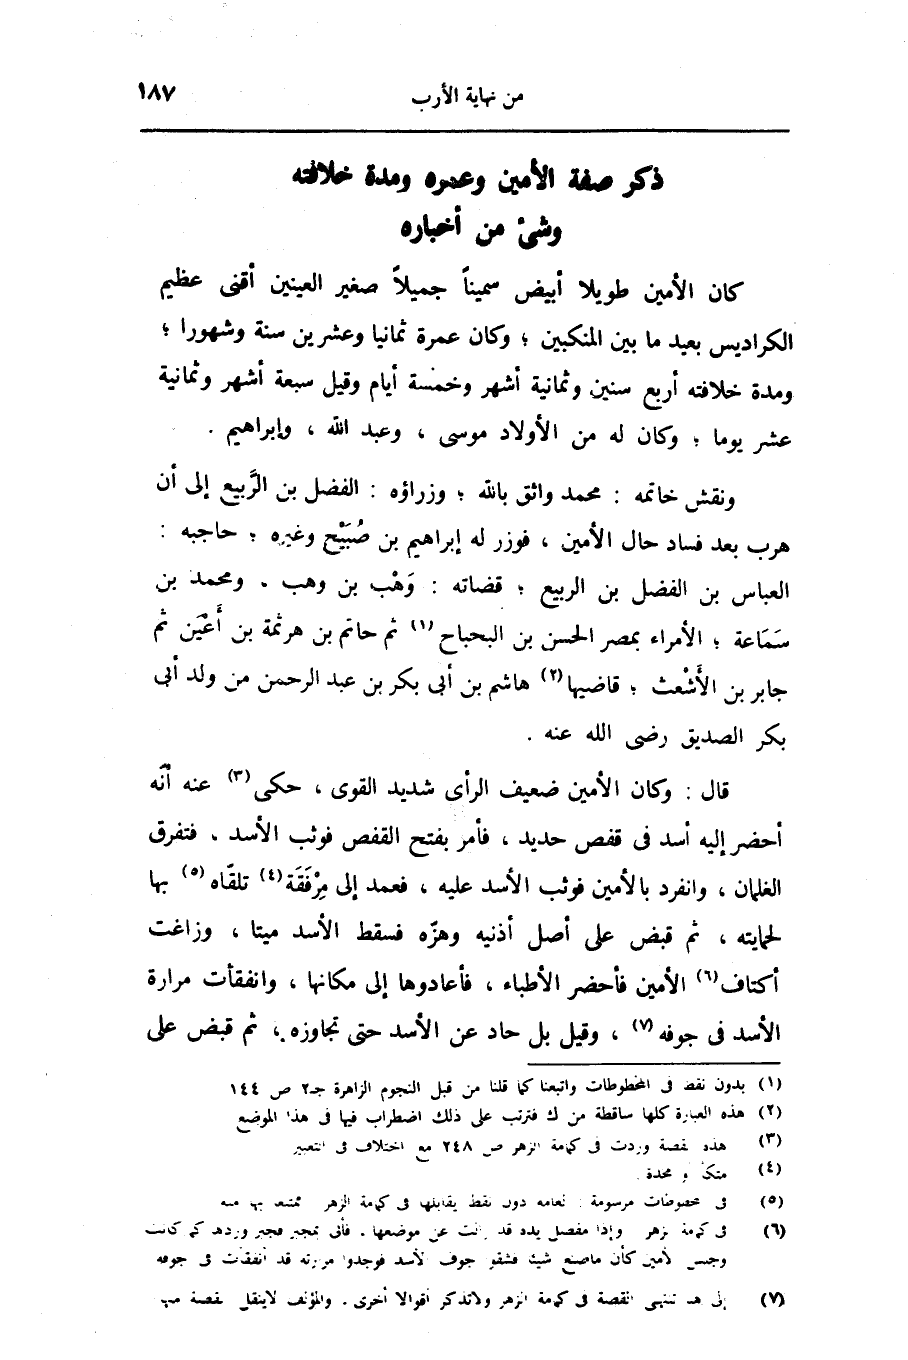 من نهاية الأرب ١٨٧
ذكر صفة الأمين وعمره ومدة خلافته
وشئ من أخباره
كان الأمين طويلا أبيض سميناً جميلاً صغير العينين أقنى عظيم
الكراديس بعيد ما بين المنكبين ؛ وكان عمرة ثمانيا وعشرين سنة وشهورا ؛
ومدة خلافته أربع سنين وثمانية أشهر وخمسة أيام وقيل سبعة أشهر وثمانية
عشر يوما ؛ وكان له من الأولاد موسى ، وعبد الله ، وإبراهيم .
ونقش خاتمه : محمد واثق بالله ؛ وزراؤه : الفضل بن الرَّبيع إلى أن
هرب بعد فساد حال الأمين ، فوزر له إبراهيم بن صُبَيْح وغيره ؛ حاجبه :
العباس بن الفضل بن الربيع ؛ قضاته : وَهْب بن وهب . ومحمد بن
سَمَاعة ؛ الأمراء بمصر الحسن بن البحباح (١) ثم حاتم بن هرثمة بن أَعْيَن ثم
جابر بن الأَشْعث ؛ قاضيها (٢) هاشم بن أبى بكر بن عبد الرحمن من ولد أبى
بكر الصديق رضى الله عنه .
قال : وكان الأمين ضعيف الرأى شديد القوى ، حكى (٣) عنه أنّه
أحضر إليه أسد فى قفص حديد ، فأمر بفتح القفص فوثب الأسد . فتفرق
الغلمان ، وانفرد بالأمين فوثب الأسد عليه ، فعمد إلى مِرْفَقَة (٤) تلقّاه (٥) بها
لحمايته ، ثم قبض على أصل أذنيه وهزّه فسقط الأسد ميتا ، وزاغت
أكتاف (٦) الأمين فأحضر الأطباء ، فأعادوها إلى مكانها ، وانفقأت مرارة
الأسد فى جوفه (٧) ، وقيل بل حاد عن الأسد حتى تجاوزه ، ثم قبض على
(١) بدون نقط فى المخطوطات واتبعنا كما قلنا من قبل النجوم الزاهرة جـ٢ ص ١٤٤
(٢) هذه العبارة كلها ساقطة من ك فترتب على ذلك اضطراب فيها فى هذا الموضع
(٣) هذه القصة وردت فى كمامة الزهر ص ٢٤٨ مع اختلاف فى التعبير
(٤) متكأ و مخدة
(٥) فى مخطوطات مرسومة : دون نقط يقابلها فى كمامة الزهر
(٦) فى كمامة الزهر وإذا مفصل يده قد عن موضعها . فأتى
وجلس الأمين كأن ماصنع شيئا فشقوا جوف الأسد فوجدوا مرارته قد انفقأت فى جوفه
(٧) إلى هنا تنتهى القصة فى كمامة الزهر ولاتذكر أقوالا أخرى . والمؤلف لاينقل القصة منها